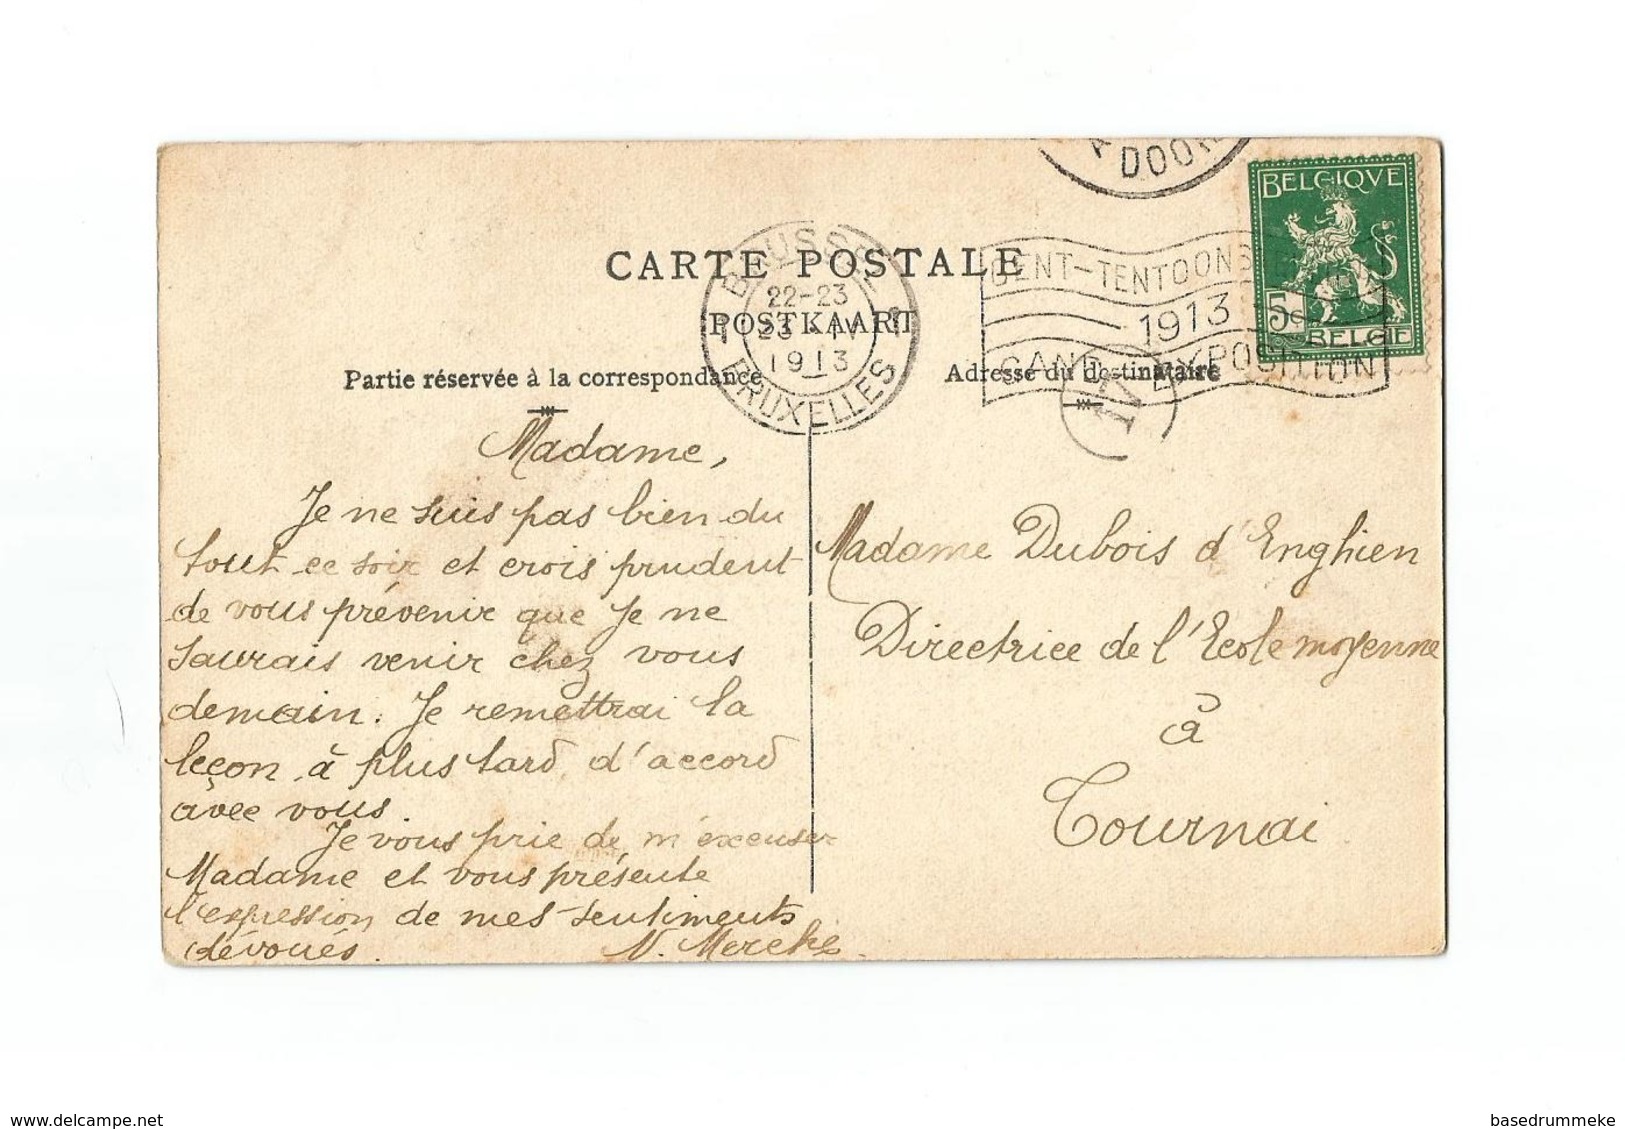 DOOR
BELGIQVE
5c
BELGIE
CARTE POSTALE
POSTKAART
BRUXELLES
22-23
23 IV
1913
GENT-TENTOONS
1913
GAND EXPOSITION
IV
Partie réservée à la correspondance
Adresse du destinataire
Madame,
Je ne suis pas bien du
tout ce soir et crois prudent
de vous prévenir que je ne
saurais venir chez vous
demain. Je remettrai la
leçon à plus tard d'accord
avec vous
Je vous prie de m'excuser
Madame et vous présente
l'expression de mes sentiments
dévoués.
Madame Dubois d'Enghien
Directrice de l'Ecole moyenne
à
Tournai
www.delcampe.net
basedrummeke